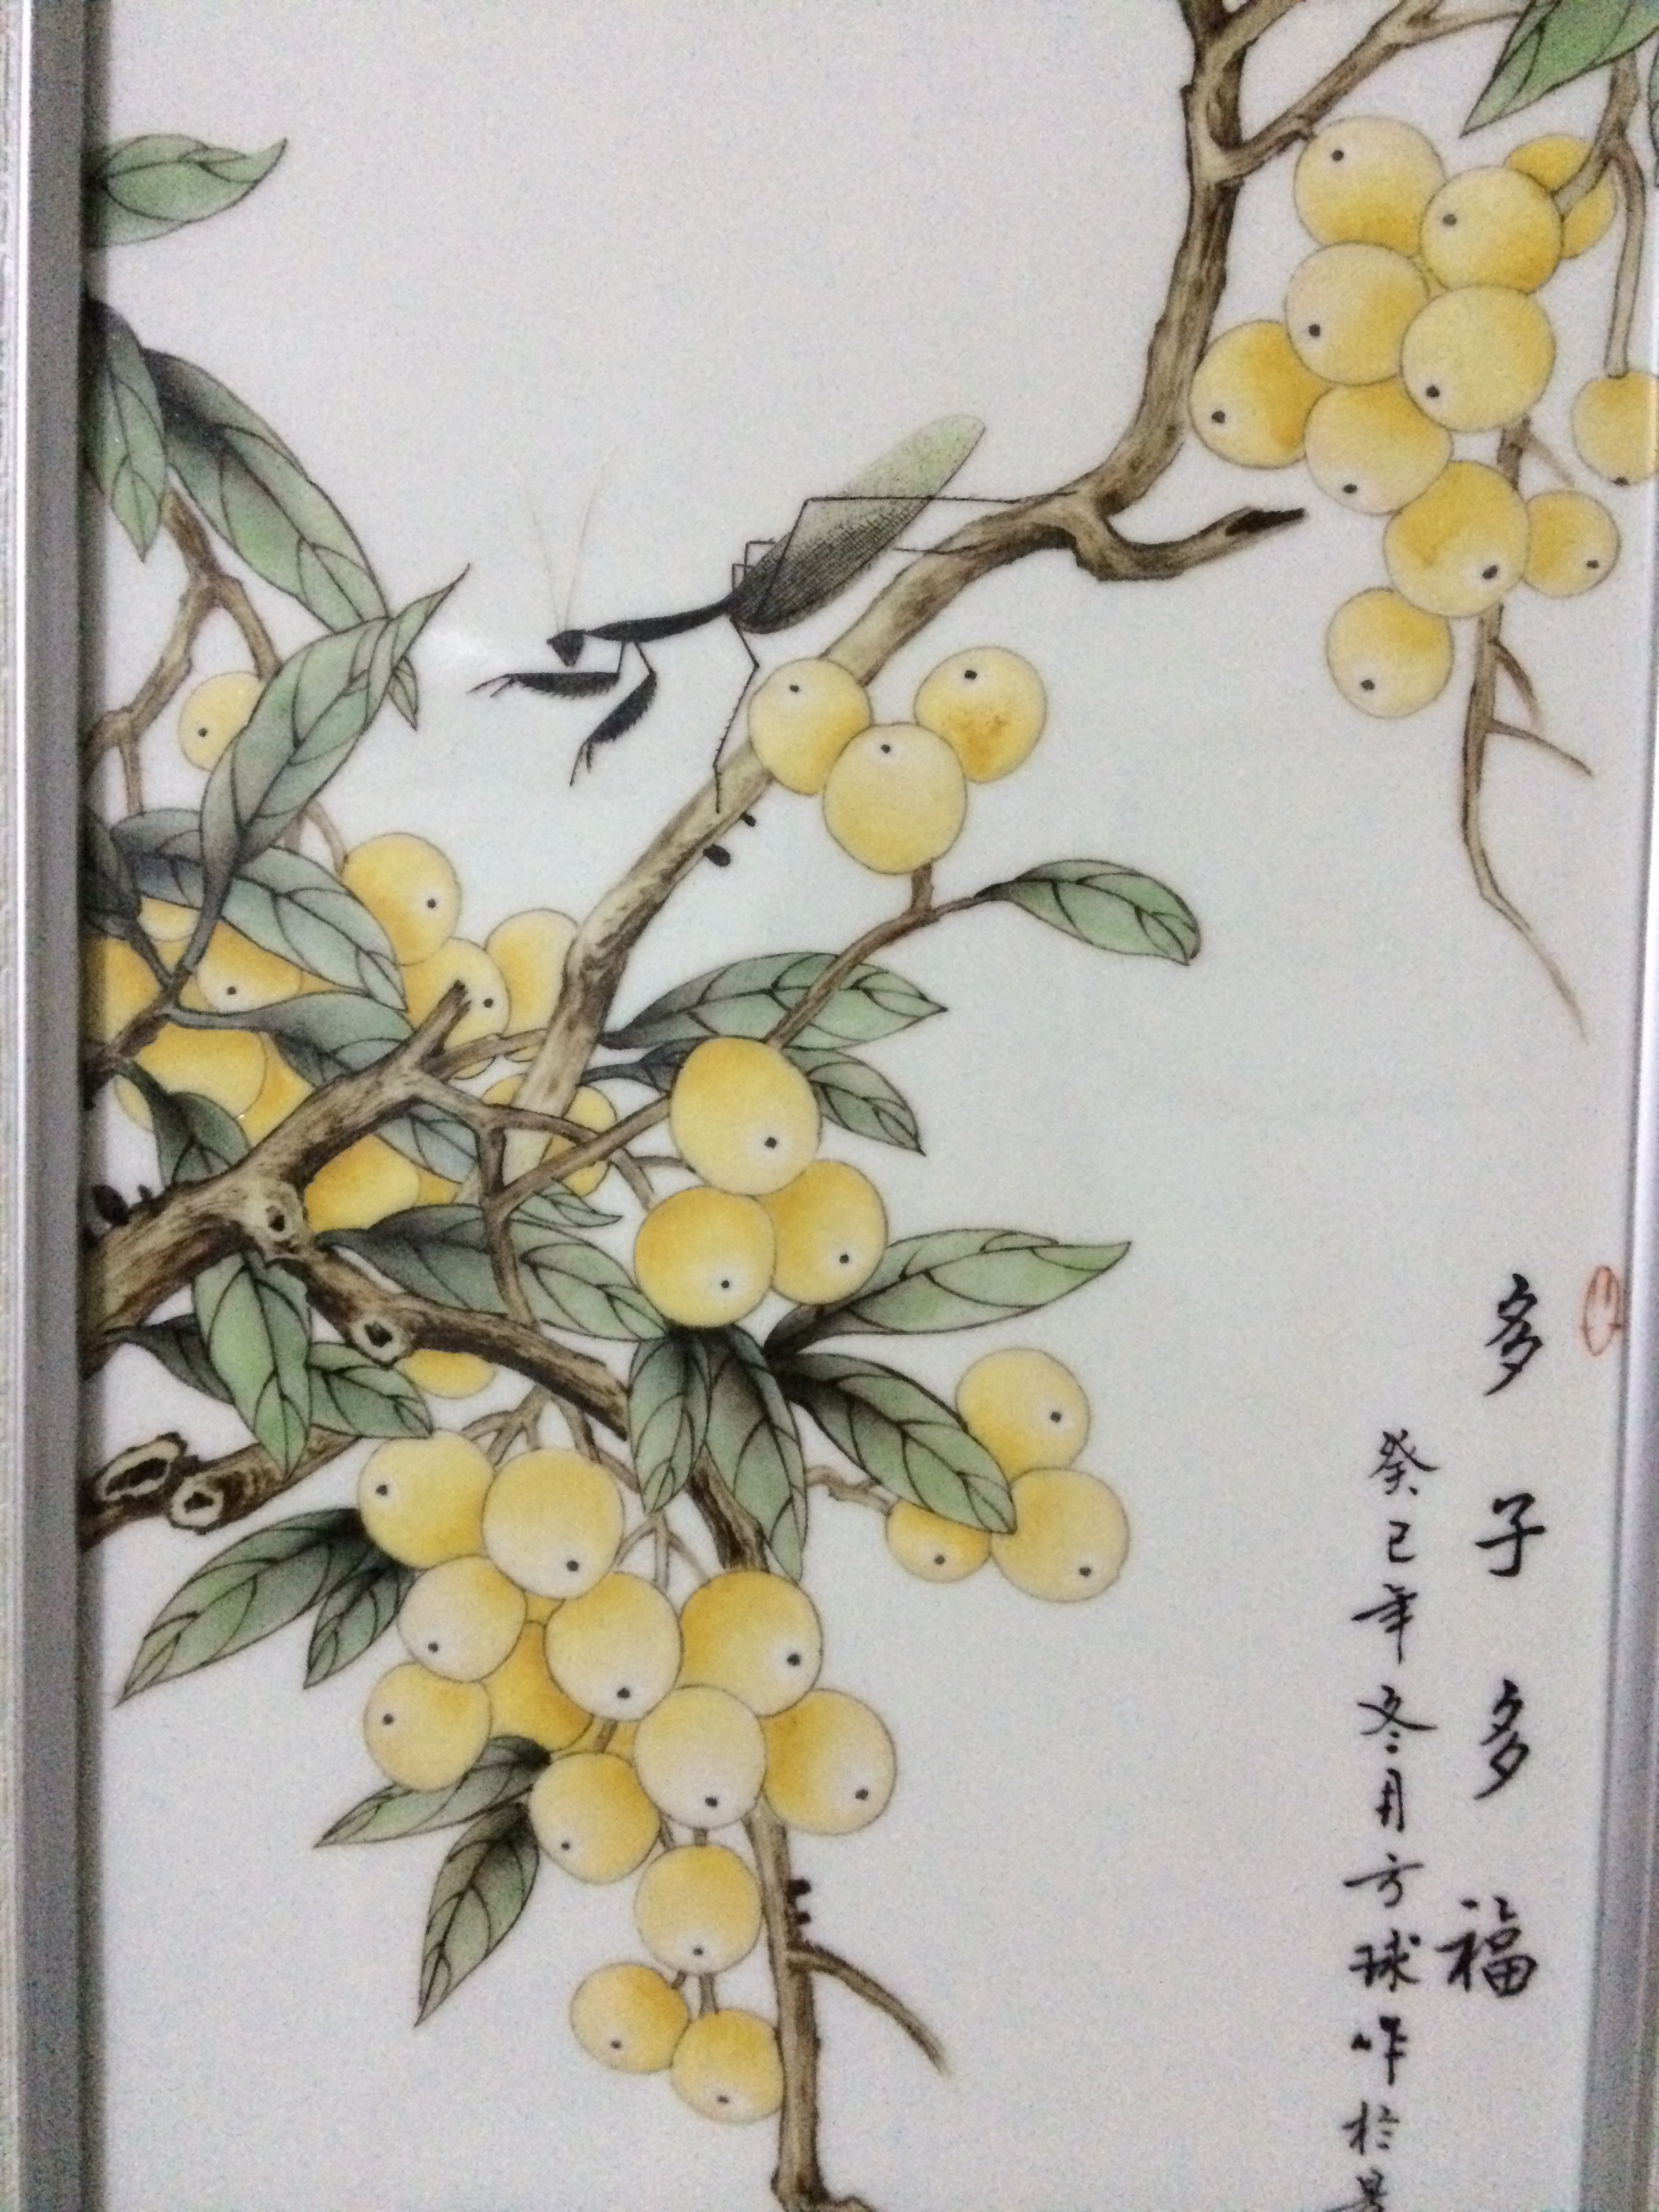 多子多福
癸巳年冬月方球作於景